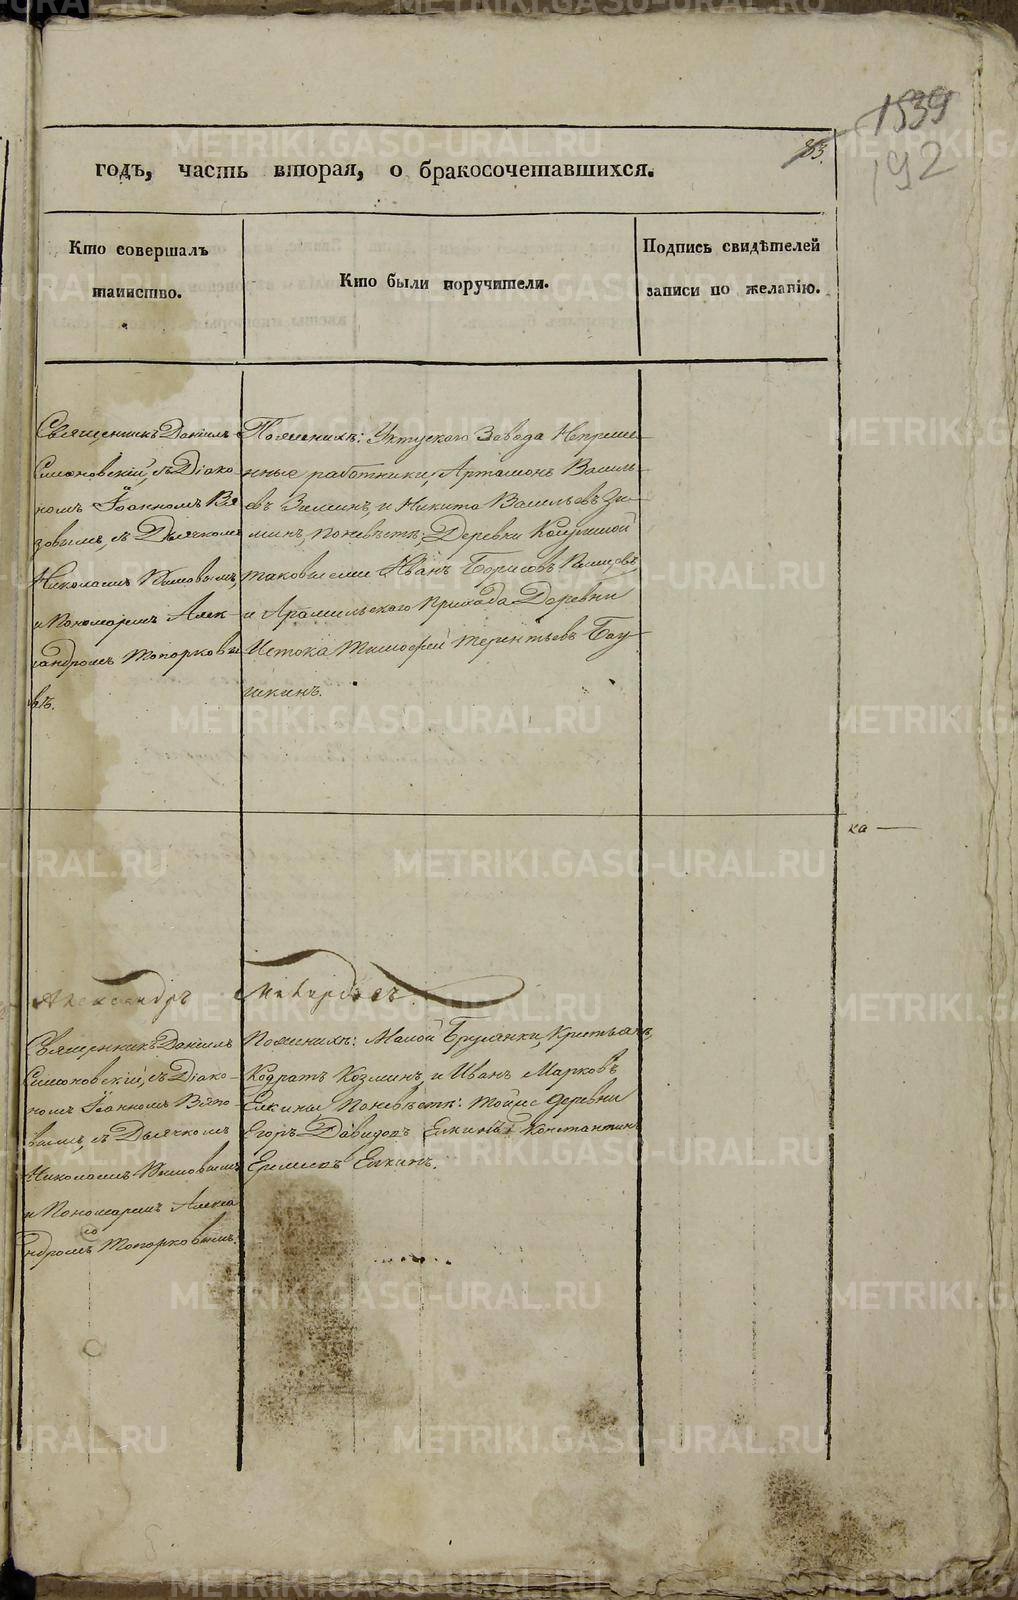 1539
192
83.
годъ, часть вторая, о бракосочетавшихся.
Кто совершалъ
таинство.
Кто были поручители.
Подпись свидѣтелей
записи по желанію.
Священникъ Даніилъ
Симоновскій, съ Діако-
номъ Іоанномъ Вя
зовымъ, съ Дьячкомъ
Николаемъ
и Пономаремъ Алек-
сандромъ Топорковы
мъ.
Поженихѣ: Уктускаго Завода Непреме-
нные работники, Артамонъ Василь-
евъ Зиминъ, и Никита Васильевъ Зи-
минъ, поневѣстѣ, Деревни
таковыеже Иванъ Борисовъ
и Арамильскаго Прихода Деревни
Истока Тимофей Терентьевъ Бау
шкинъ.
ка —
Александръ
Священникъ Даніилъ
Симоновскій, съ Діако-
номъ Іоанномъ Вязо-
вымъ, съ Дьячкомъ
Николаемъ
и Пономаремъ Алекса
ндромъ Топорковымъ.
Поженихѣ: Малой Брусянки, Крестьянъ,
Кодратъ Козминъ, и Иванъ Марковъ
Елкины, Поневѣстѣ: тойже деревни
Егоръ Давидовъ Елкинъ и Константинъ
Елкинъ.
METRIKI.GASO-URAL.RU